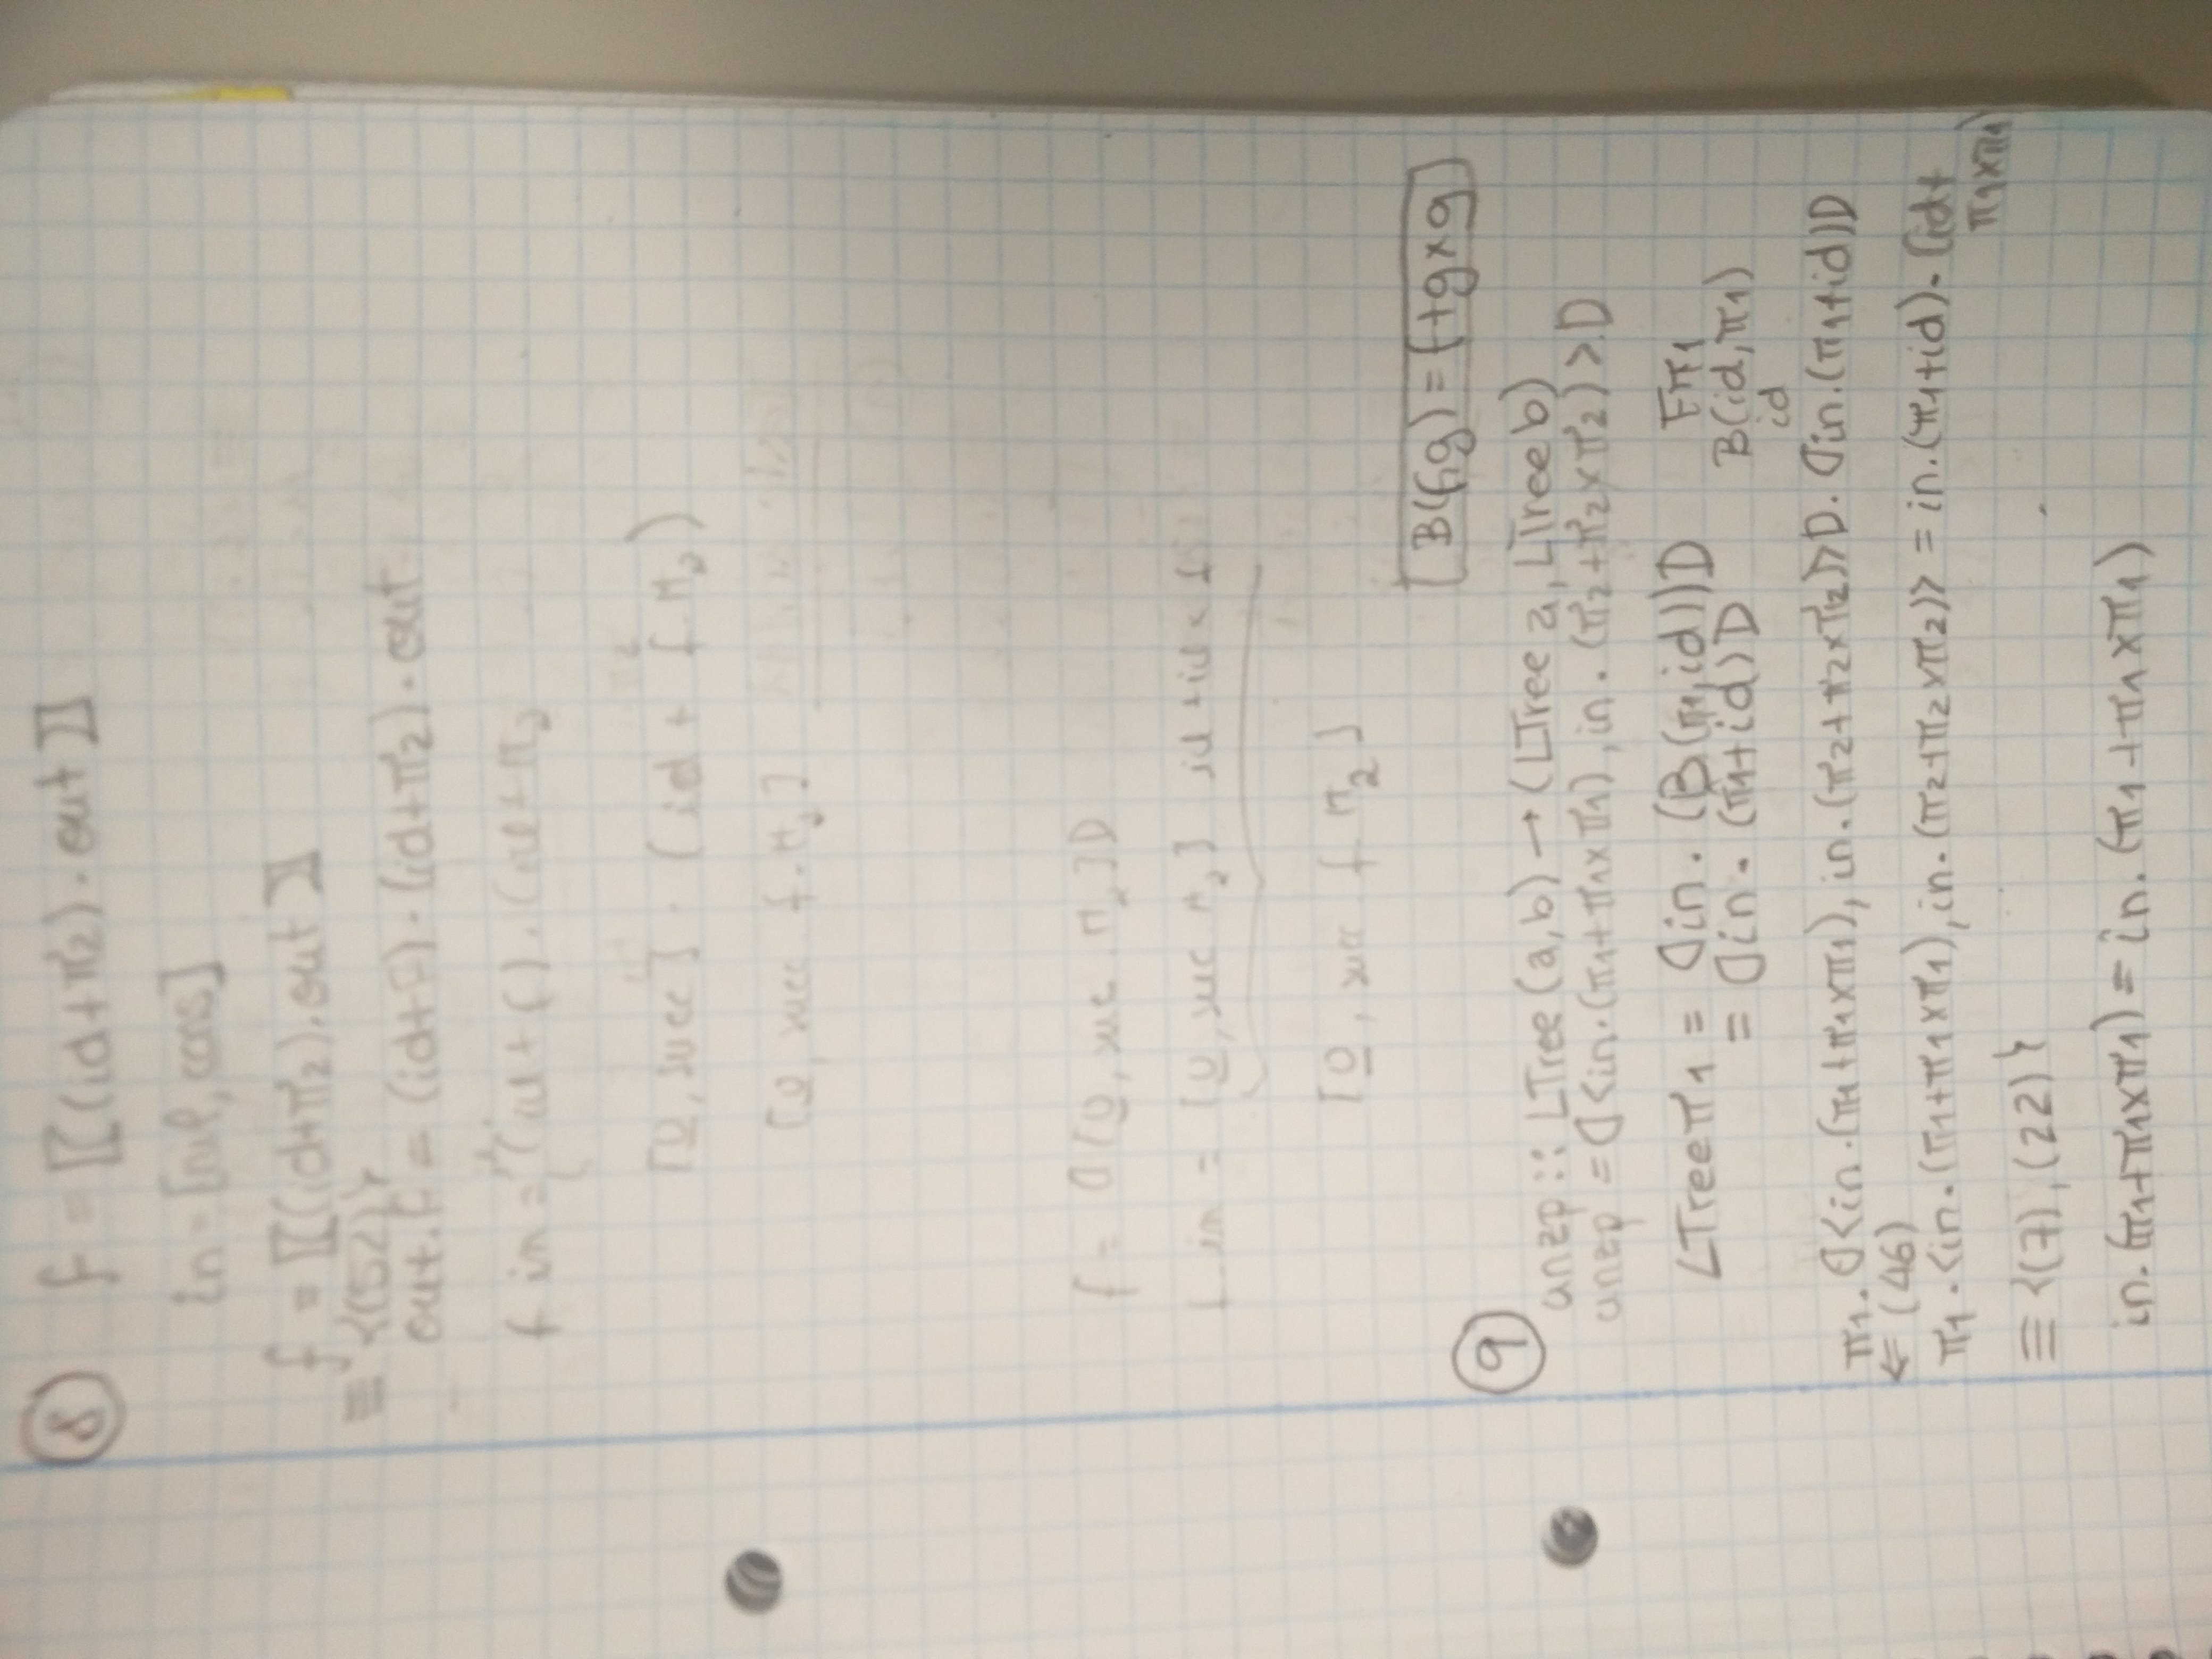 ⑧ f = ⟦(id+π2) . out⟧
in = [nil, cons]
f = ⟦(id+π2) . out⟧
≡ {(52)}
out . f = (id+f) . (id+π2) . out
f in = (id + f) . (id + π2
[0, succ] . (id + f . π2)
[0, succ f . π2]
f = ⦇[0, suc π2]⦈
f . in = [0, suc π2] id + id × f
[0, succ f π2]
B(f,g) = f+g×g
⑨
unzp :: LTree (a,b) → (LTree a, LTree b)
unzp = ⦇<in . (π1+π1×π1), in . (π2+π2×π2)>⦈
LTree π1 = ⦇in . (B(π1,id))⦈ Fπ1
= ⦇in . (π1+id)⦈ B(id,π1)
id
π1 . ⦇<in . (π1+π1×π1), in . (π2+π2×π2)>⦈ . ⦇in . (π1+id)⦈
⇐ (46)
π1 . <in . (π1+π1×π1), in . (π2+π2×π2)> = in . (π1+id) . (id+
π1×π1)
≡ {(7), (22)}
in . (π1+π1×π1) = in . (π1+π1×π1)